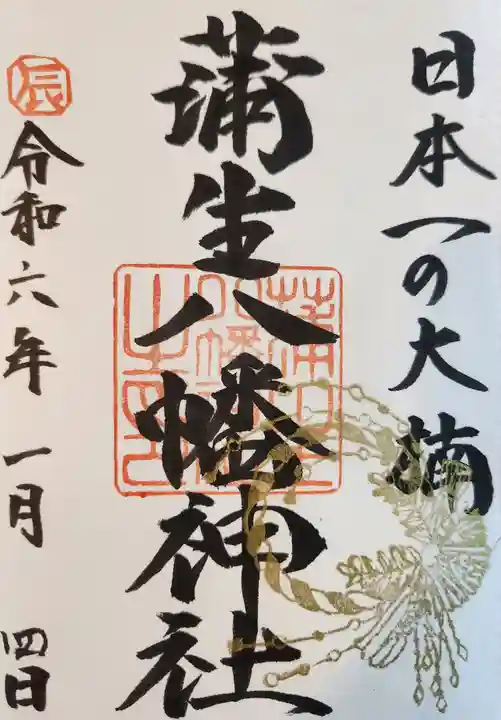 日本一の大楠
蒲生八幡神社
辰
令和六年 一月 四日